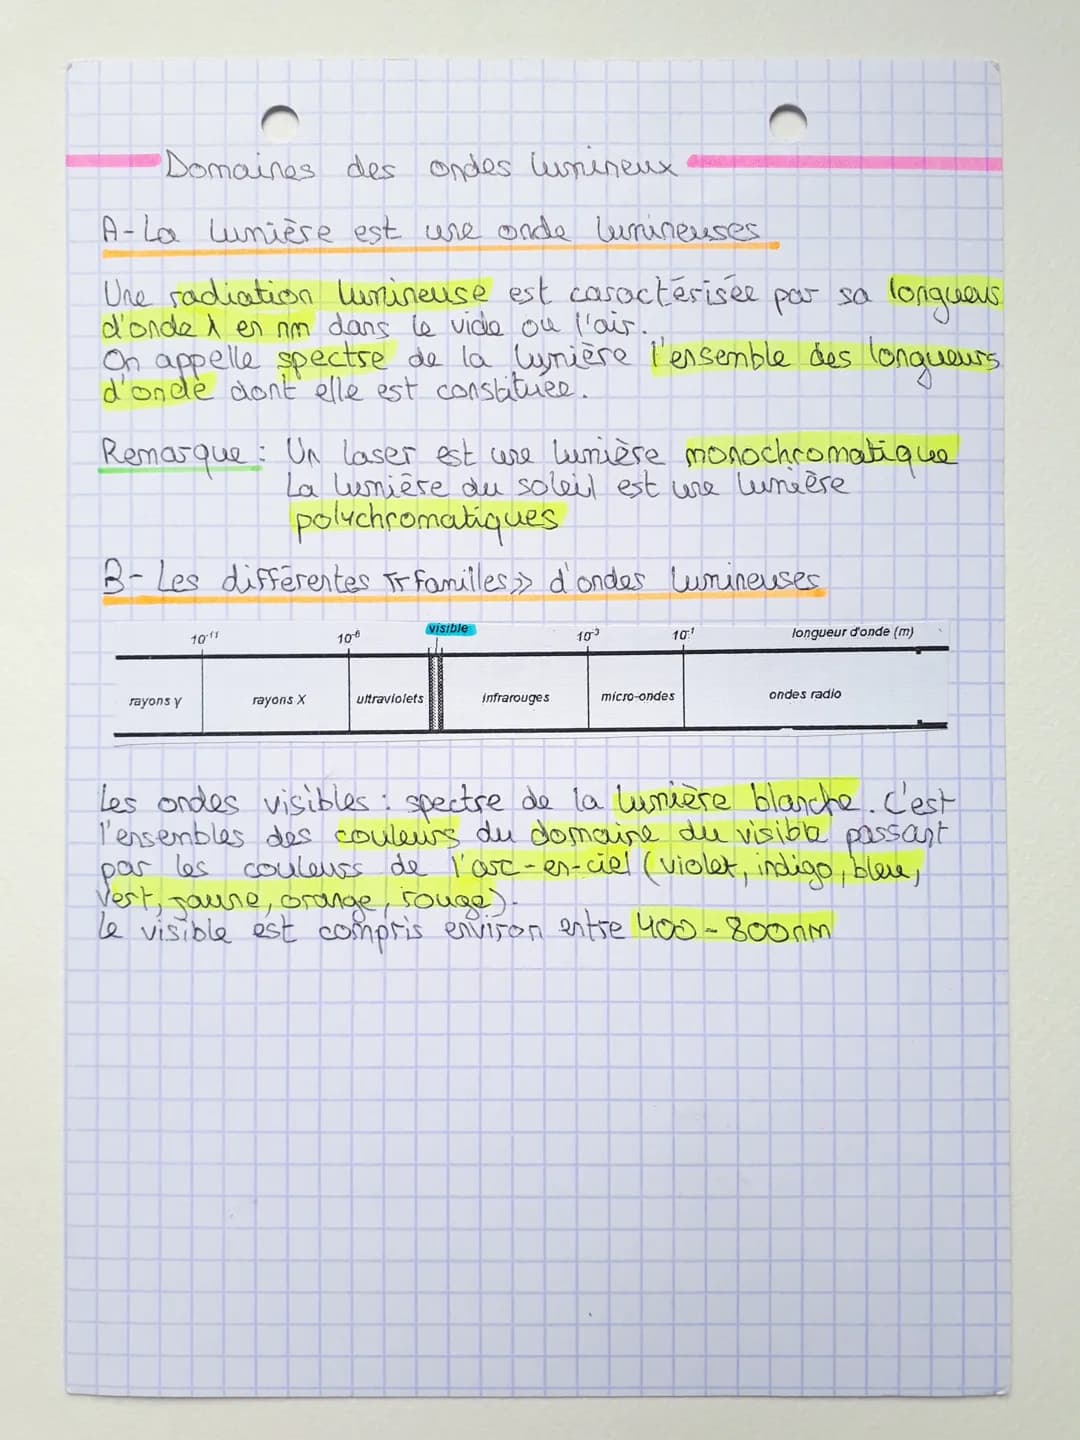 Domaines des ondes lumineux
A- La lumière est une onde lumineuses
Une radiation lumineuse est caractérisée par sa longueurs
d'onde λ en nm dans le vide ou l'air.
On appelle spectre de la lumière l'ensemble des longueurs
d'onde dont elle est constituée.
Remarque : Un laser est une lumière monochromatique
La lumière du soleil est une lumière
polychromatiques
B- Les différentes « familles » d'ondes lumineuses
10⁻¹¹ 10⁻⁸ visible 10⁻³ 10⁻¹ longueur d'onde (m)
rayons γ rayons X ultraviolets infrarouges micro-ondes ondes radio
Les ondes visibles : spectre de la lumière blanche. C'est
l'ensembles des couleurs du domaine du visible passant
par les couleurs de l'arc-en-ciel (violet, indigo, bleu,
vert, jaune, orange, rouge).
Le visible est compris environ entre 400 - 800nm